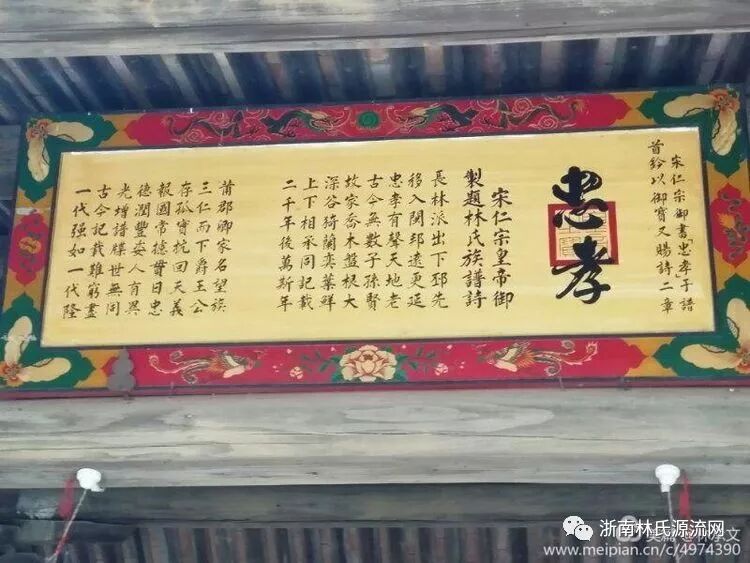 宋仁宗御書「忠孝子譜
首鈐以御寶又賜詩二章
忠孝
宋仁宗皇帝御
製題林氏族譜詩
長林派出下邳先
移入閩邱遠更延
忠孝有聲天地老
古今無數子孫賢
故家喬木盤根大
深谷猗蘭奕葉鮮
上下相承同記載
二千年後萬斯年
莆郡卿家名望族
三仁而下爵王公
存孤寶杭回天義
報國常德貫日忠
德潤豐姿人有異
光增譜牒世無同
古今記載難窮盡
一代强如一代隆
浙南林氏源流网
www.meipian.cn/c/4974390